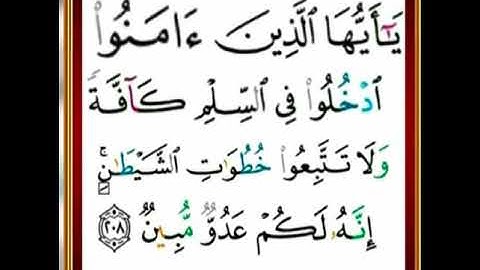 يَٰٓأَيُّهَا ٱلَّذِينَ ءَامَنُوا۟
ٱدْخُلُوا۟ فِى ٱلسِّلْمِ كَآفَّةً
وَلَا تَتَّبِعُوا۟ خُطُوَٰتِ ٱلشَّيْطَٰنِ ۚ
إِنَّهُۥ لَكُمْ عَدُوٌّ مُّبِينٌ ٢٠٨